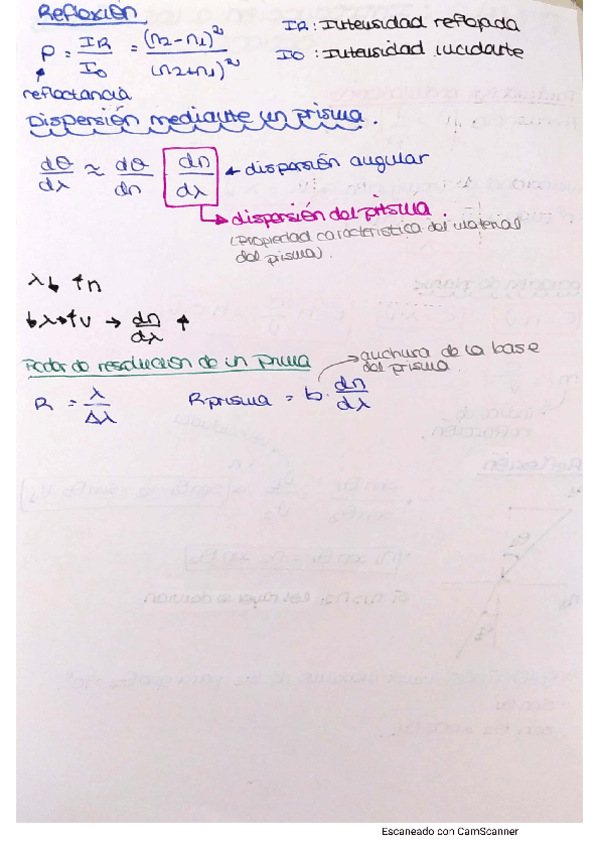 Reflexión
ρ = IR / I0 = (n2-n1)² / (n2+n1)²
IR: Intensidad reflejada
I0: Intensidad incidante
reflectancia
Dispersión mediante un prisma.
dθ/dλ ≈ dθ/dn · dn/dλ ← dispersión angular
dispersión del pritsma.
(Propiedad caracteristica del material
del prisma).
λ↓ ↑n
↓λ→↑ν → dn/dλ ↑
Factor de resolución de un prisma
anchura de la base
del prisma.
R = λ/Δλ
Rprisma = b· dn/dλ
Escaneado con CamScanner